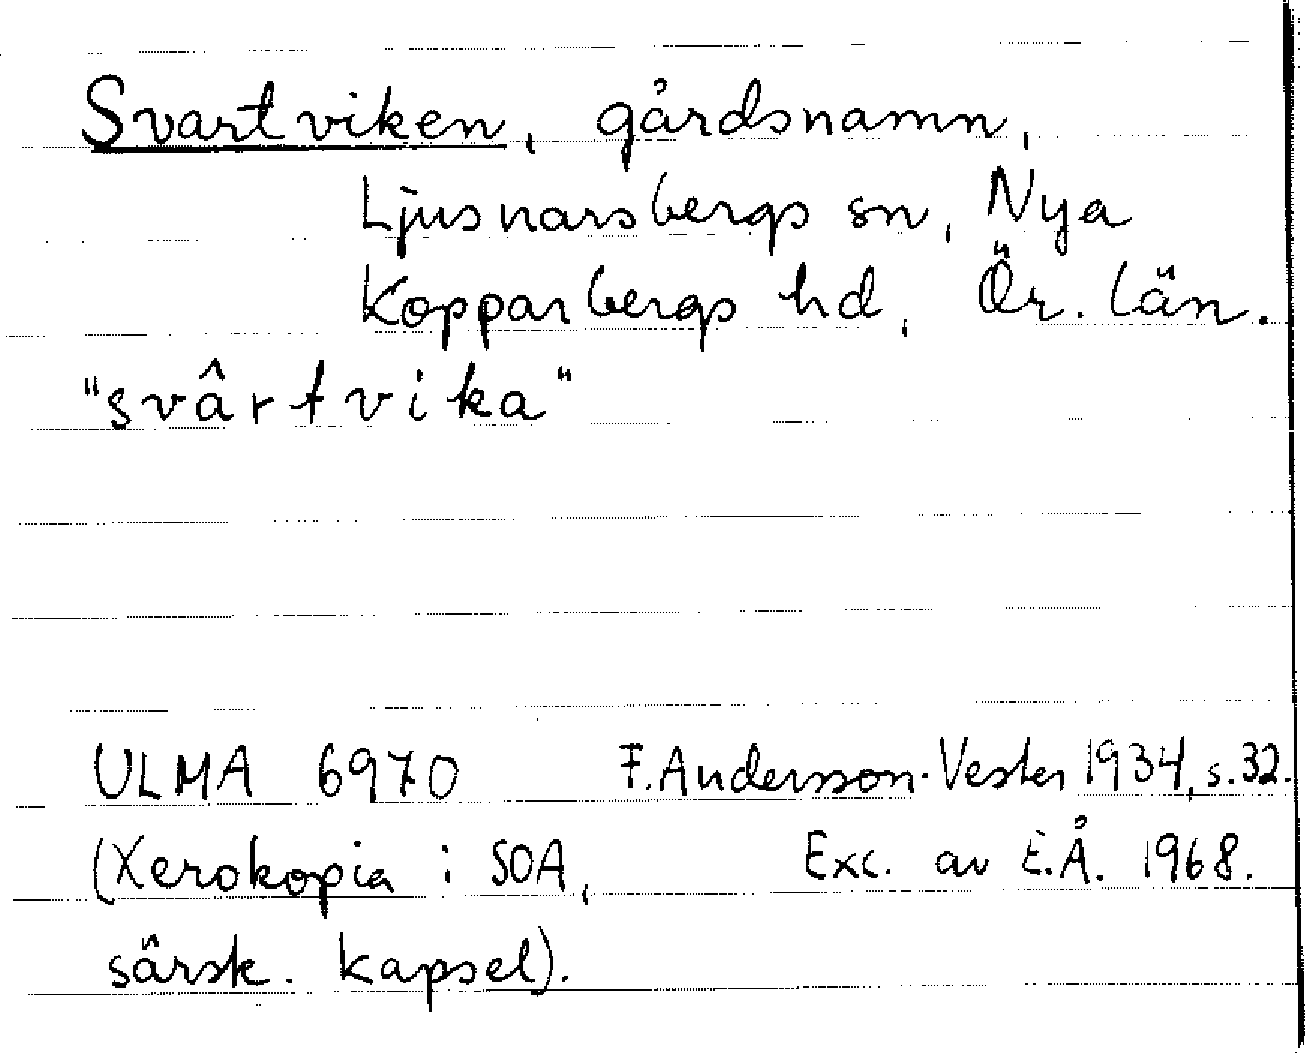 Svartviken, gårdsnamn,
Ljusnarsbergs sn, Nya
Kopparbergs hd, Ör. län.
"svârtvika"
ULMA 6970 F. Andersson-Vester 1934, s. 32.
(Xerokopia i SOA, Exc. av E.Å. 1968.
särsk. kapsel).